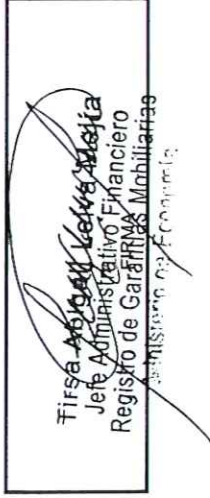 Tirsa Abigail Leiva Mejía
Jefe Administrativo Financiero
FIRMA
Registro de Garantías Mobiliarias
Ministerio de Economía